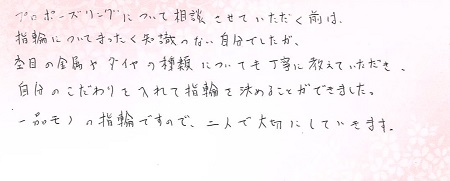 プロポーズリングについて相談させていただく前は、
指輪についてまったく知識のない自分でしたが、
空目の金属やダイヤの種類についても丁寧に教えていただき、
自分のこだわりを入れて指輪を決めることができました。
一品モノの指輪ですので、二人で大切にしていきます。